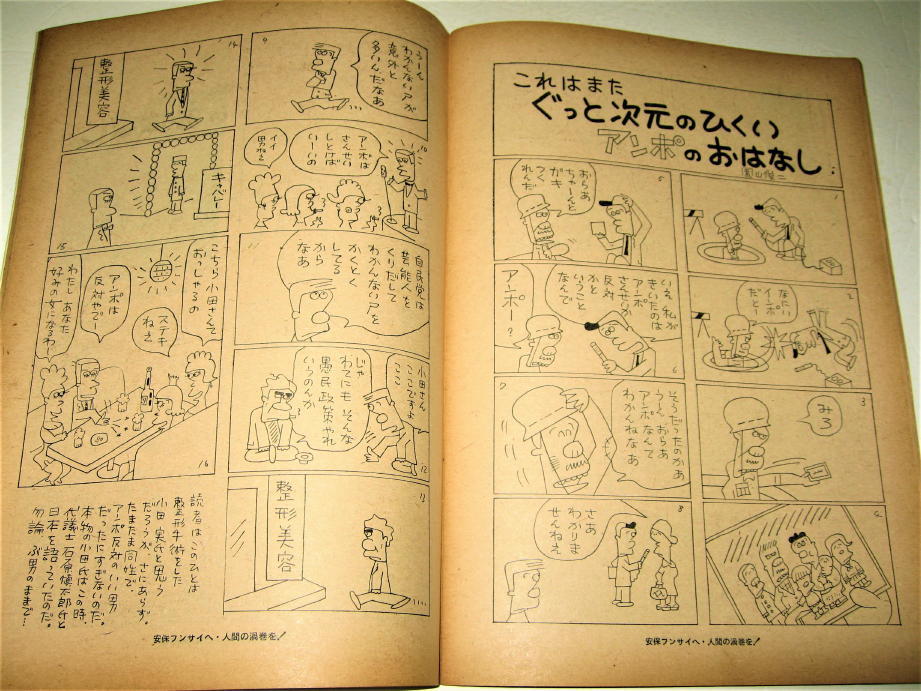 これはまた
ぐっと次元のひくい
アンポのおはなし
1
2
なたい
イイポ
だと!
3
みろ
4
5
おらあ
ちゃーんと
ガキ
つく
れんだ
6
いえ私が
きいたのは
アンポ
さんせいか
反対
かと
いうこと
なんで
アンポー?
7
そうだったのかあ
うーん おらあ
アンポなんて
わかんねなあ
8
さあ
わかりま
せんねえ
9
うーん
わかんない人が
意外と
多いんだなあ
10
アンポは
さんせい
しとけば
いーいの
イイ
男ねえ
11
自民党は
芸能人を
くりだして
わかんない人を
かくとく
してる
から
なあ
12
小田さん
ここですよ
ここ
じゃ
わてにも そんな
愚民政策やれ
いうのんか
13
整形美容
14
整形美容
15
キャバレー
16
こちら小田さんて
おっしゃるの
アンポは
反対やでー
ステキ
ねえ
わたし あなた
好みの女になるわー
読者はこのひとは
整形手術をした
小田 実氏と思う
だろうが、さにあらず。
たまたま同性で、
アンポ反対のいい男
だったにすぎないのだ。
本物の小田氏はこの時、
代議士 石原慎太郎氏と
日本を語っていたのだ。
勿論 ぶ男のままで…
安保フンサイへ・人間の渦巻を!
安保フンサイへ・人間の渦巻を!